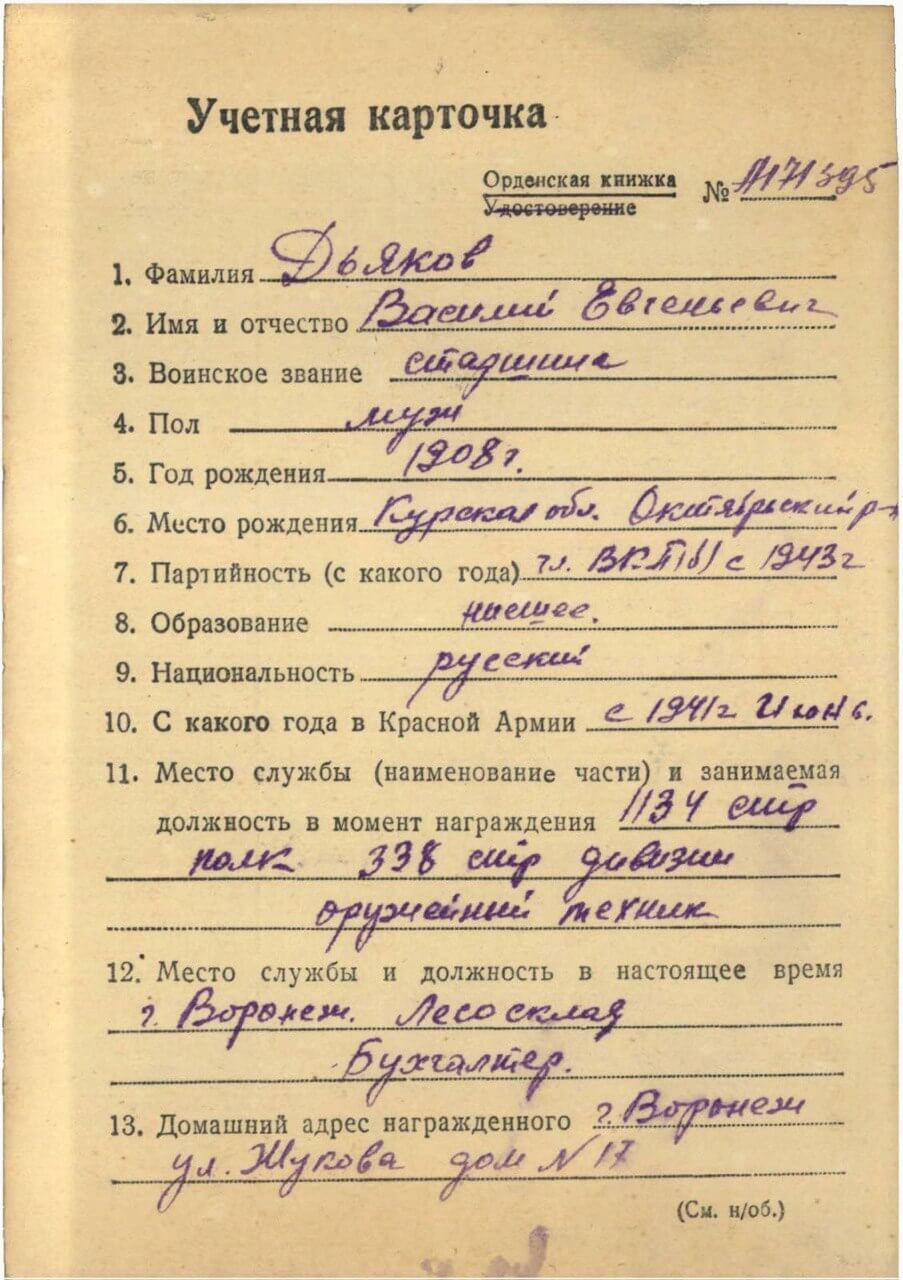 Учетная карточка
Орденская книжка
Удостоверение
№ Л171395
1. Фамилия Дьяков
2. Имя и отчество Василий Евгеньевич
3. Воинское звание старшина
4. Пол муж
5. Год рождения 1908 г.
6. Место рождения Курская обл. Октябрьский р-н
7. Партийность (с какого года) чл. ВКП(б) с 1943 г
8. Образование низшее.
9. Национальность русский
10. С какого года в Красной Армии с 1941 г Июнь.
11. Место службы (наименование части) и занимаемая
должность в момент награждения 1134 стр
полк 338 стр дивизии
оружейный техник
12. Место службы и должность в настоящее время
г. Воронеж. Лесосклад
Бухгалтер.
13. Домашний адрес награжденного г. Воронеж
ул. Жукова дом N 17
(См. н/об.)